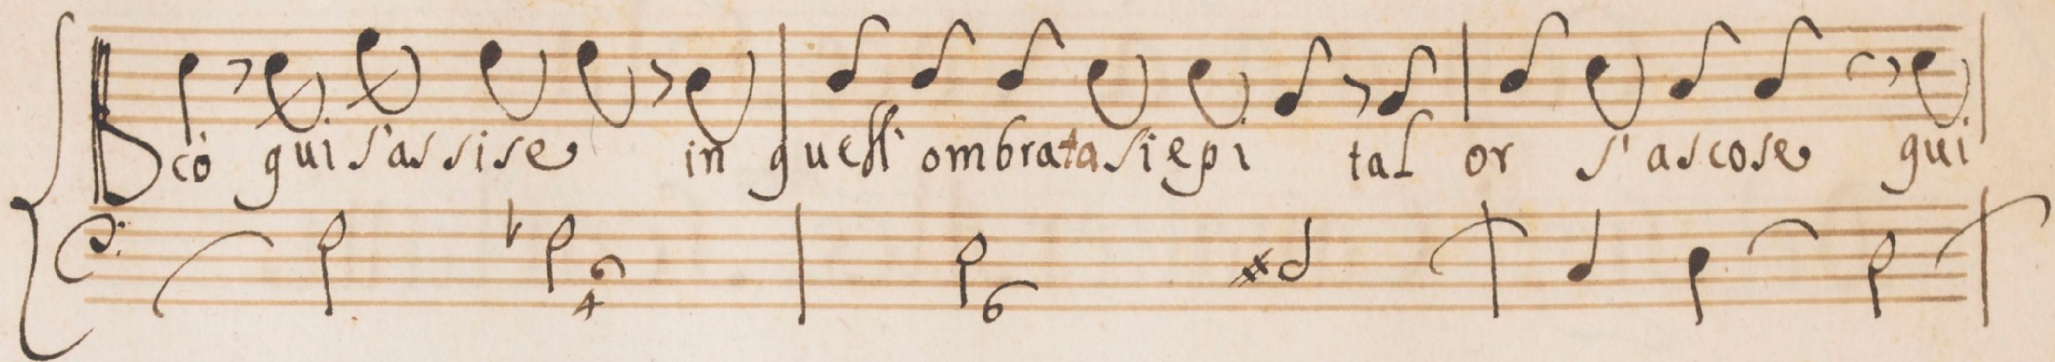 cò qui s'assise in quell' ombrata siepi tal or s'ascose qui
6
4 6